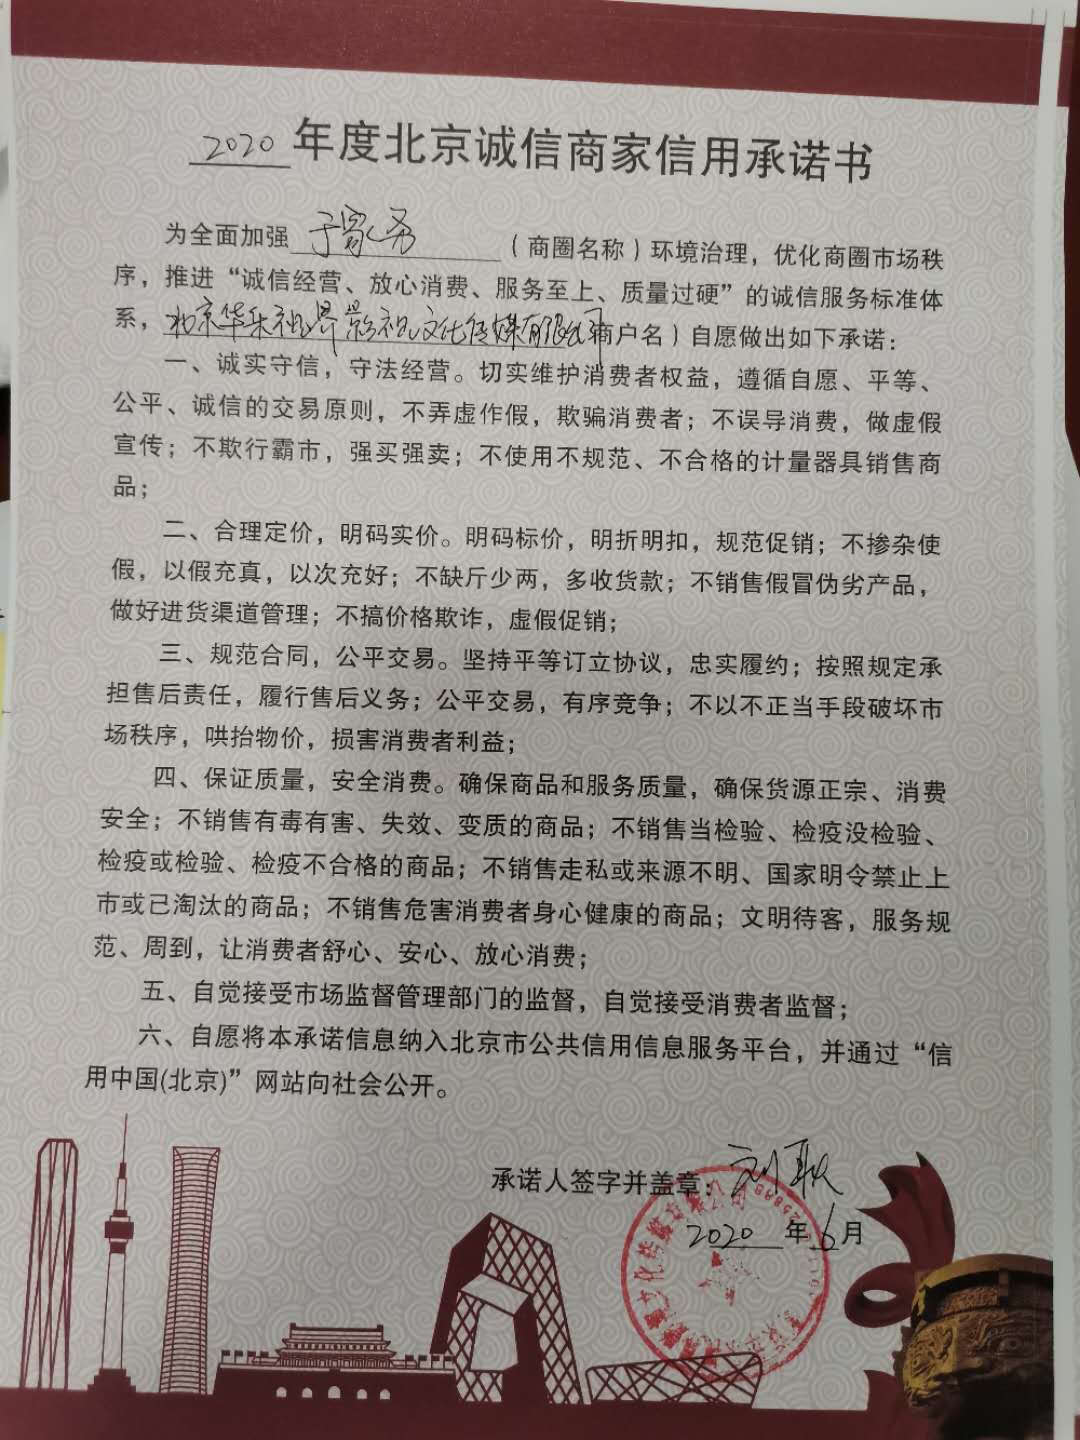 2020 年度北京诚信商家信用承诺书
为全面加强 于家务 （商圈名称）环境治理，优化商圈市场秩
序，推进“诚信经营、放心消费、服务至上、质量过硬”的诚信服务标准体
系，北京华乐视界影视文化传媒有限公司商户名）自愿做出如下承诺：
一、诚实守信，守法经营。切实维护消费者权益，遵循自愿、平等、
公平、诚信的交易原则，不弄虚作假，欺骗消费者；不误导消费，做虚假
宣传；不欺行霸市，强买强卖；不使用不规范、不合格的计量器具销售商
品；
二、合理定价，明码实价。明码标价，明折明扣，规范促销；不掺杂使
假，以假充真，以次充好；不缺斤少两，多收货款；不销售假冒伪劣产品，
做好进货渠道管理；不搞价格欺诈，虚假促销；
三、规范合同，公平交易。坚持平等订立协议，忠实履约；按照规定承
担售后责任，履行售后义务；公平交易，有序竞争；不以不正当手段破坏市
场秩序，哄抬物价，损害消费者利益；
四、保证质量，安全消费。确保商品和服务质量，确保货源正宗、消费
安全；不销售有毒有害、失效、变质的商品；不销售当检验、检疫没检验、
检疫或检验、检疫不合格的商品；不销售走私或来源不明、国家明令禁止上
市或已淘汰的商品；不销售危害消费者身心健康的商品；文明待客，服务规
范、周到，让消费者舒心、安心、放心消费；
五、自觉接受市场监督管理部门的监督，自觉接受消费者监督；
六、自愿将本承诺信息纳入北京市公共信用信息服务平台，并通过“信
用中国(北京)”网站向社会公开。
承诺人签字并盖章：刘耿
2020 年 6 月